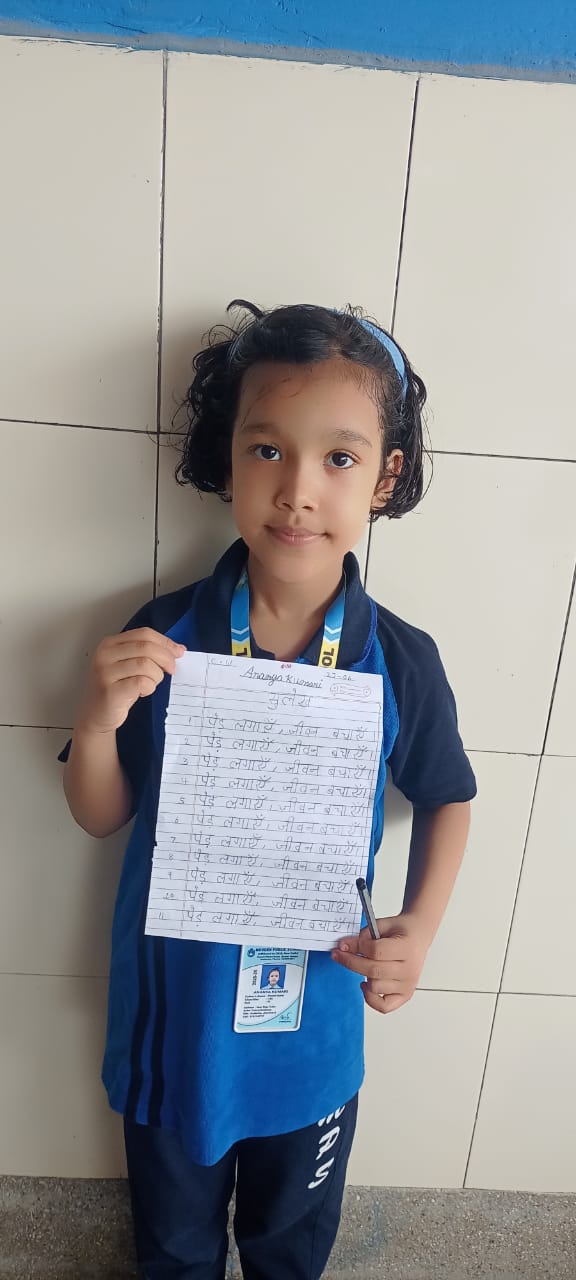 C.W.
Ananya Kumari
सुलेख
1 पेड़ लगाएँ, जीवन बचाएँ।
2 पेड़ लगाएँ, जीवन बचाएँ।
3 पेड़ लगाएँ, जीवन बचाएँ।
4 पेड़ लगाएँ, जीवन बचाएँ।
5 पेड़ लगाएँ, जीवन बचाएँ।
6 पेड़ लगाएँ, जीवन बचाएँ।
7 पेड़ लगाएँ, जीवन बचाएँ।
8 पेड़ लगाएँ, जीवन बचाएँ।
9 पेड़ लगाएँ, जीवन बचाएँ।
10 पेड़ लगाएँ, जीवन बचाएँ।
11 पेड़ लगाएँ, जीवन बचाएँ।
PUBLIC
ANANYA KUMARI